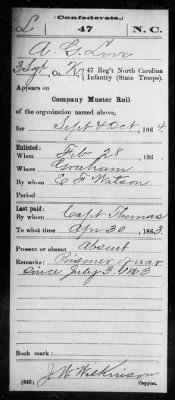 (Confederate.)
L 47 N.C.
A. G. Love
3 Sgt, Co. K, 47 Reg't North Carolina
Infantry (State Troops).
Appears on
Company Muster Roll
of the organization named above,
for Sept & Oct, 1864.
Enlisted:
When Feb 28, 186
Where Graham
By whom E F Watson
Period
Last paid:
By whom Capt Thomas
To what time Apr 30, 1863.
Present or absent Absent
Remarks: Prisoner of war
since July 3, 1863
Book mark:
J. W. Wilkinson
(642) Copyist.